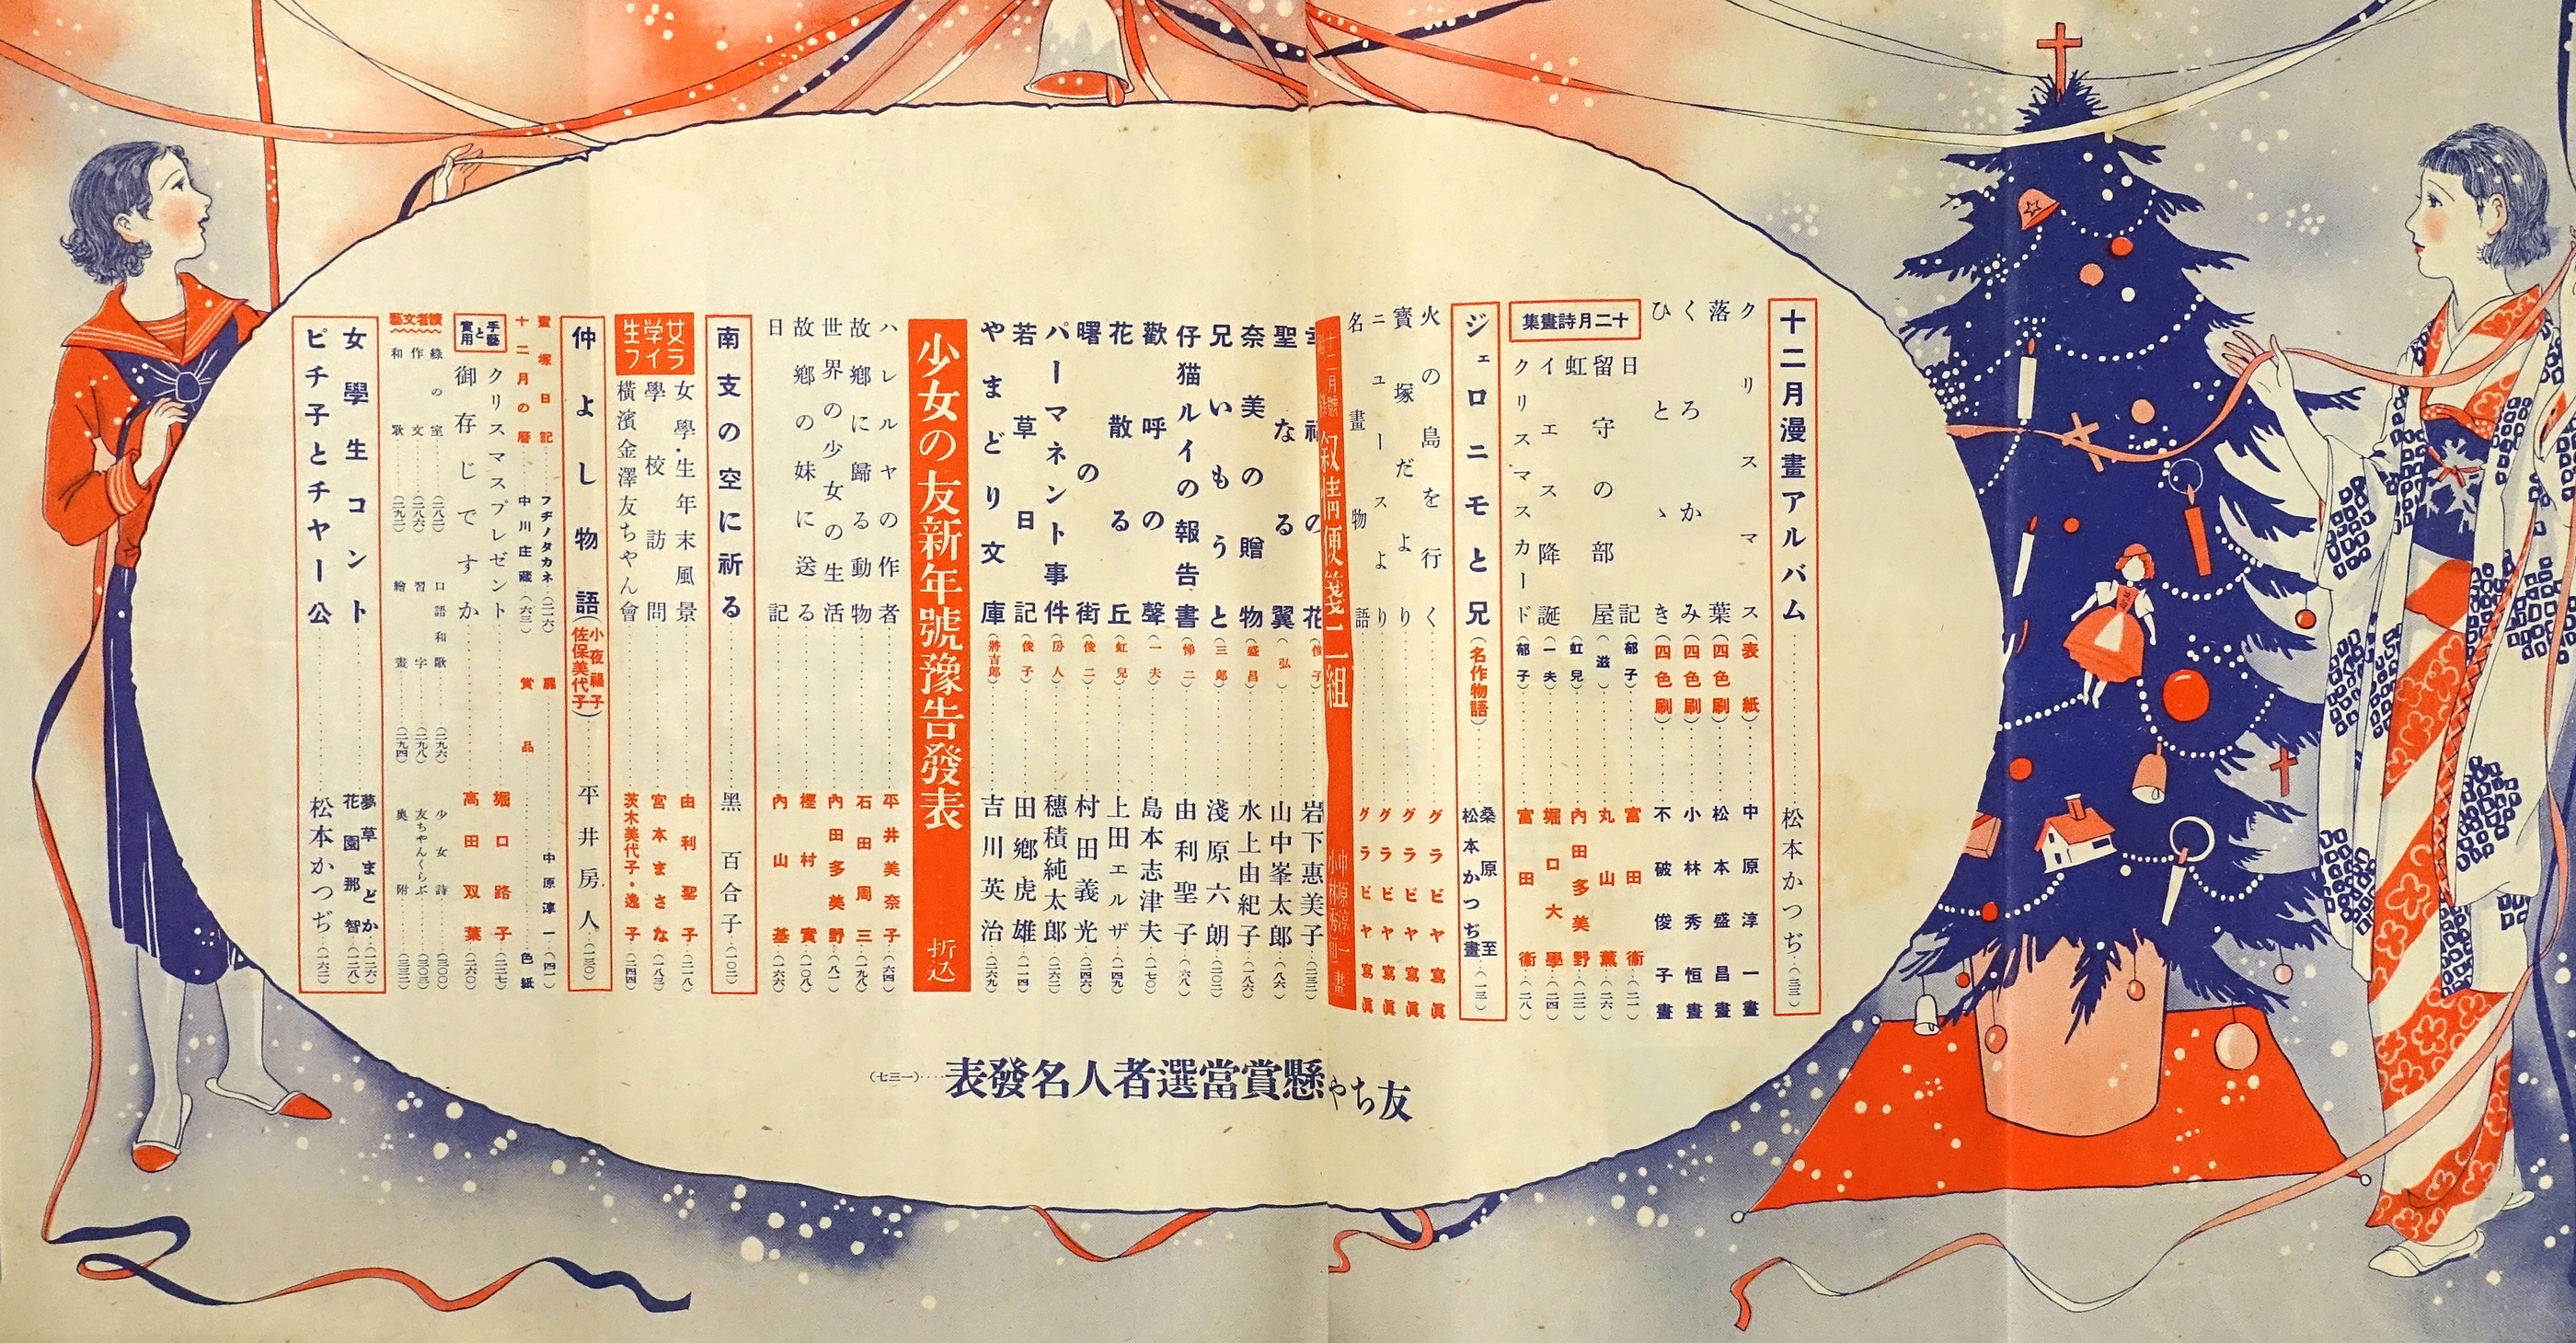 十二月漫畫アルバム……松本かつぢ…(三三)
クリスマス(表紙)……中原淳一畫
落葉(四色刷)……松本盛昌畫
くろかみ(四色刷)……小林秀恒畫
ひとゝき(四色刷)……不破俊子畫
十二月詩畫集
日記(郁子)……富田衞…(二一)
留守の部屋(滋)……丸山薫…(二六)
虹(虹兒)……内田多美野…(二二)
イエス降誕(一夫)……堀口大學…(二四)
クリスマスカード(郁子)……富田衞…(二八)
ジェロニモと兄(名作物語)……桑原至 松本かつぢ畫…(一三)
火の島を行く……グラビヤ寫眞
寶塚だより……グラビヤ寫眞
ニュースより……グラビヤ寫眞
名畫物語……グラビヤ寫眞
十二月號 叙情便箋二組 中原淳一 小林秀恒 畫
の花……岩下惠美子…(二三二)
聖なる翼(弘)……山中峯太郎…(八六)
奈美の贈物(盛昌)……水上由紀子…(一八六)
兄いもうと(三郎)……淺原六朗…(二〇二)
仔猫ルイの報告書(悌二)……由利聖子…(六八)
歡呼の聲(一夫)……島本志津夫…(一七〇)
花散る丘(虹兒)……上田エルザ…(一四九)
曙の街(俊二)……村田義光…(二四六)
パーマネント事件(房人)……穗積純太郎…(二六二)
若草日記(俊子)……田郷虎雄…(一一四)
やまどり文庫(將吉郎)……吉川英治…(二六九)
少女の友新年號豫告發表 折込
ハレルヤの作者……平井美奈子…(六四)
故郷に歸る動物……石田周三…(一九八)
世界の少女の生活……内田多美野…(八一)
故郷の妹に送る……樫村實…(一〇八)
日記……内山基…(一六六)
南支の空に祈る……黑百合子…(一〇二)
女学生ライフ
女學生年末風景……由利聖子…(二一八)
學校訪問……宮本まさな…(一八三)
橫濱金澤友ちゃん會……茨木美代子・逸子…(二四四)
仲よし物語(小夜福子 佐保美代子)……平井房人…(一三〇)
寶塚日記……フヂノタカネ…(二六)
扉……中原淳一…(四一)
十二月の曆……中川庄藏…(六三)
賞品……色紙
手藝と實用
クリスマスプレゼント……堀口路子…(二二七)
御存じですか……高田双葉…(二六〇)
讀者文藝
綠の室……(二八二)
口語和歌……(二九六)
少女詩……(三〇〇)
作文……(二八六)
習字……(二九八)
友ちやんくらぶ……(三〇三)
和歌……(二九二)
繪畫……(二九四)
奥附……(三三二)
女學生コント……夢草まどか…(一二六) 花園那智…(一二八)
ピチ子とチャー公……松本かつぢ…(一六二)
友ちや
懸賞當選者人名發表……(一三七)